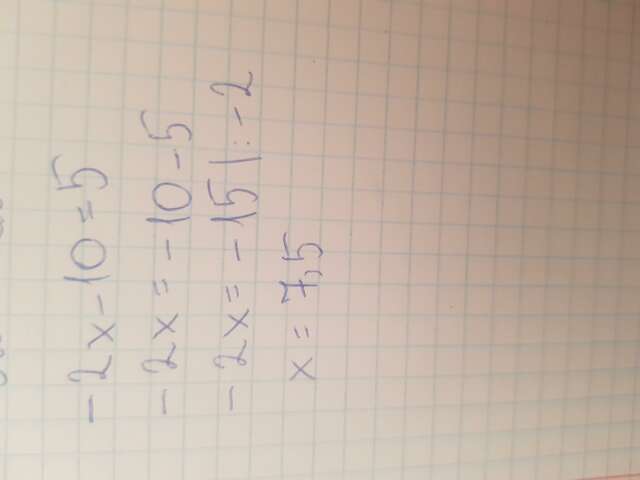 -2x-10=5
-2x=-10-5
-2x=-15|:-2
x=7,5